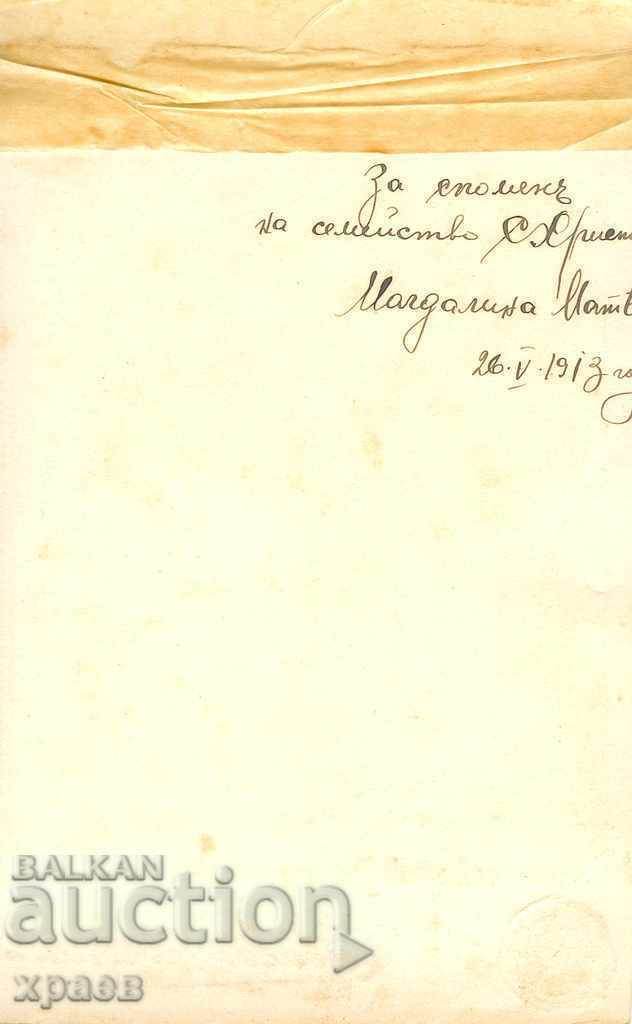 За споменъ
на семейство ХХрист
Магдалина Матв
26.V.1913 го
BALKAN
auction
храев